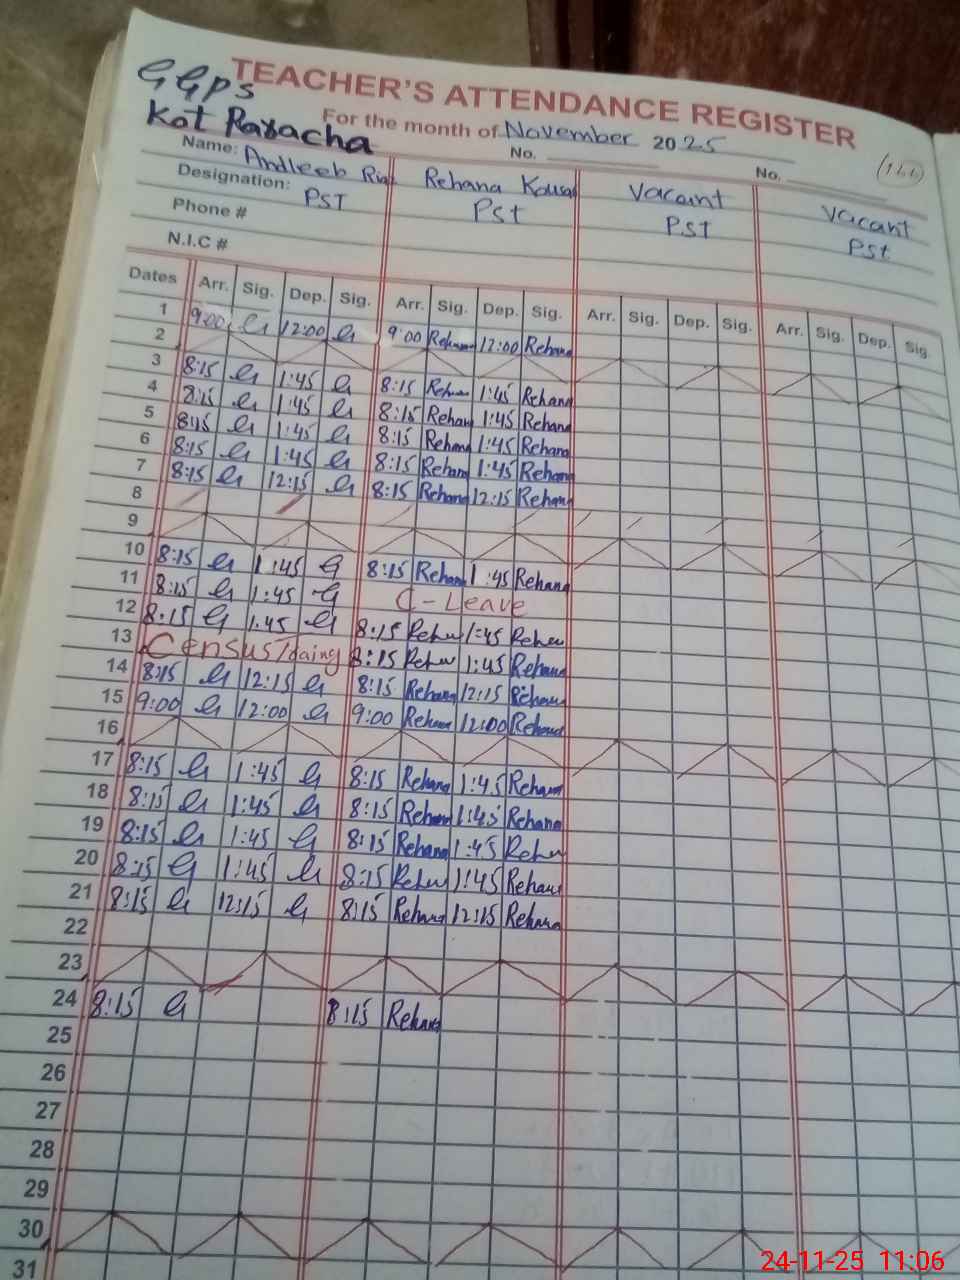 GGPS
TEACHER'S ATTENDANCE REGISTER
Kot Paracha
For the month of November 2025
Name: Andleeb No. No.
Rehana Kousa Vacant Vacant
Designation: PST Pst PST Pst
Phone #
N.I.C #
Dates Arr. Sig. Dep. Sig. Arr. Sig. Dep. Sig. Arr. Sig. Dep. Sig. Arr. Sig. Dep. Sig.
1 9:00 12:00 9:00 Rehana 12:00 Rehana
2
3 8:15 1:45 8:15 Rehana 1:45 Rehana
4 8:15 1:45 8:15 Rehana 1:45 Rehana
5 8:15 1:45 8:15 Rehana 1:45 Rehana
6 8:15 1:45 8:15 Rehana 1:45 Rehana
7 8:15 12:15 8:15 Rehana 12:15 Rehana
8
9
10 8:15 1:45 8:15 Rehana 1:45 Rehana
11 8:15 1:45 C-Leave
12 8:15 1:45 8:15 1:45
13 Census 8:15 1:45 Rehana
14 8:15 12:15 8:15 Rehana 12:15 Rehana
15 9:00 12:00 9:00 Rehana 12:00 Rehana
16
17 8:15 1:45 8:15 Rehana 1:45 Rehana
18 8:15 1:45 8:15 Rehana 1:45 Rehana
19 8:15 1:45 8:15 Rehana 1:45
20 8:15 1:45 8:15 1:45 Rehana
21 8:15 12:15 8:15 Rehana 12:15 Rehana
22
23
24 8:15 8:15 Rehana
25
26
27
28
29
30
31
24-11-25 11:06